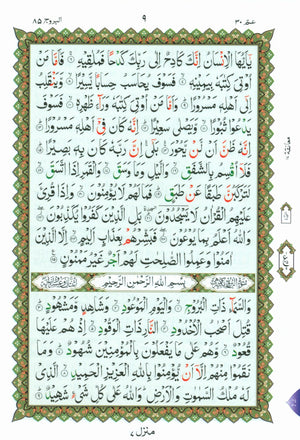 عم ٣٠
٩
البروج ٨٥
يٰٓاَيُّهَا الْاِنْسَانُ اِنَّكَ كَادِحٌ اِلٰى رَبِّكَ كَدْحًا فَمُلٰقِيْهِ ۚ فَاَمَّا مَنْ
اُوْتِيَ كِتٰبَهٗ بِيَمِيْنِهٖ ۙ فَسَوْفَ يُحَاسَبُ حِسَابًا يَّسِيْرًا ۙ وَّيَنْقَلِبُ
اِلٰٓى اَهْلِهٖ مَسْرُوْرًا ؕ وَاَمَّا مَنْ اُوْتِيَ كِتٰبَهٗ وَرَآءَ ظَهْرِهٖ ۙ فَسَوْفَ
يَدْعُوْا ثُبُوْرًا ۙ وَّيَصْلٰى سَعِيْرًا ؕ اِنَّهٗ كَانَ فِيْٓ اَهْلِهٖ مَسْرُوْرًا ؕ
اِنَّهٗ ظَنَّ اَنْ لَّنْ يَّحُوْرَ ۚۛ بَلٰٓى ۚۛ اِنَّ رَبَّهٗ كَانَ بِهٖ بَصِيْرًا ؕ
فَلَآ اُقْسِمُ بِالشَّفَقِ ۙ وَالَّيْلِ وَمَا وَسَقَ ۙ وَالْقَمَرِ اِذَا اتَّسَقَ ۙ
لَتَرْكَبُنَّ طَبَقًا عَنْ طَبَقٍ ؕ فَمَا لَهُمْ لَا يُؤْمِنُوْنَ ۙ وَاِذَا قُرِئَ
عَلَيْهِمُ الْقُرْاٰنُ لَا يَسْجُدُوْنَ ؕ۩ بَلِ الَّذِيْنَ كَفَرُوْا يُكَذِّبُوْنَ ؗۖ
وَاللّٰهُ اَعْلَمُ بِمَا يُوْعُوْنَ ؗۖ فَبَشِّرْهُمْ بِعَذَابٍ اَلِيْمٍ ۙ اِلَّا الَّذِيْنَ
اٰمَنُوْا وَعَمِلُوا الصّٰلِحٰتِ لَهُمْ اَجْرٌ غَيْرُ مَمْنُوْنٍ
بِسْمِ اللّٰهِ الرَّحْمٰنِ الرَّحِيْمِ
وَالسَّمَآءِ ذَاتِ الْبُرُوْجِ ۙ وَالْيَوْمِ الْمَوْعُوْدِ ۙ وَشَاهِدٍ وَّمَشْهُوْدٍ ؕ
قُتِلَ اَصْحٰبُ الْاُخْدُوْدِ ۙ النَّارِ ذَاتِ الْوَقُوْدِ ۙ اِذْ هُمْ عَلَيْهَا
قُعُوْدٌ ۙ وَّهُمْ عَلٰى مَا يَفْعَلُوْنَ بِالْمُؤْمِنِيْنَ شُهُوْدٌ ؕ وَمَا
نَقَمُوْا مِنْهُمْ اِلَّآ اَنْ يُّؤْمِنُوْا بِاللّٰهِ الْعَزِيْزِ الْحَمِيْدِ ۙ الَّذِيْ
لَهٗ مُلْكُ السَّمٰوٰتِ وَالْاَرْضِ ؕ وَاللّٰهُ عَلٰى كُلِّ شَيْءٍ شَهِيْدٌ ؕ
منزل ٧